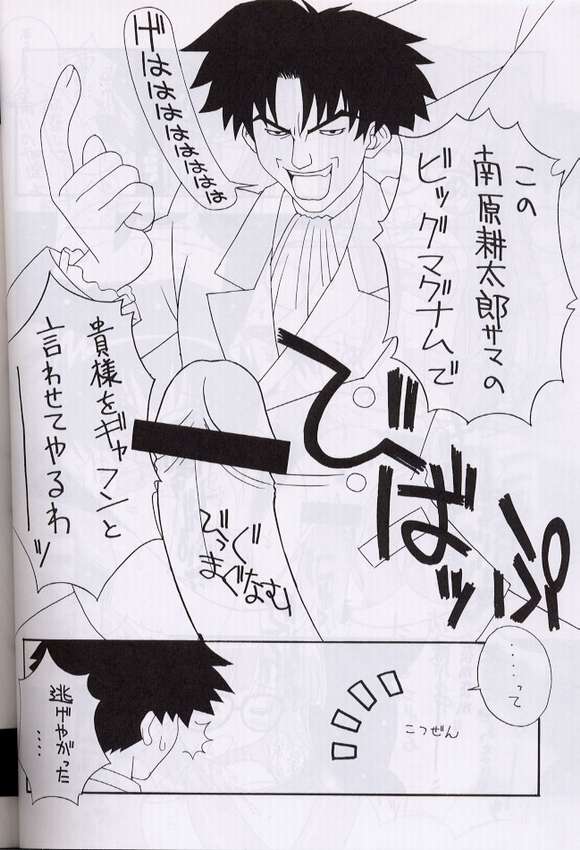 この
南原耕太郎サマの
ビッグマグナムで
げはははははははは
貴様をギャフンと
言わせてやるわーッ
びっぐ
まぐなむ
びばッ
……って
こつぜん
逃げやがった
……